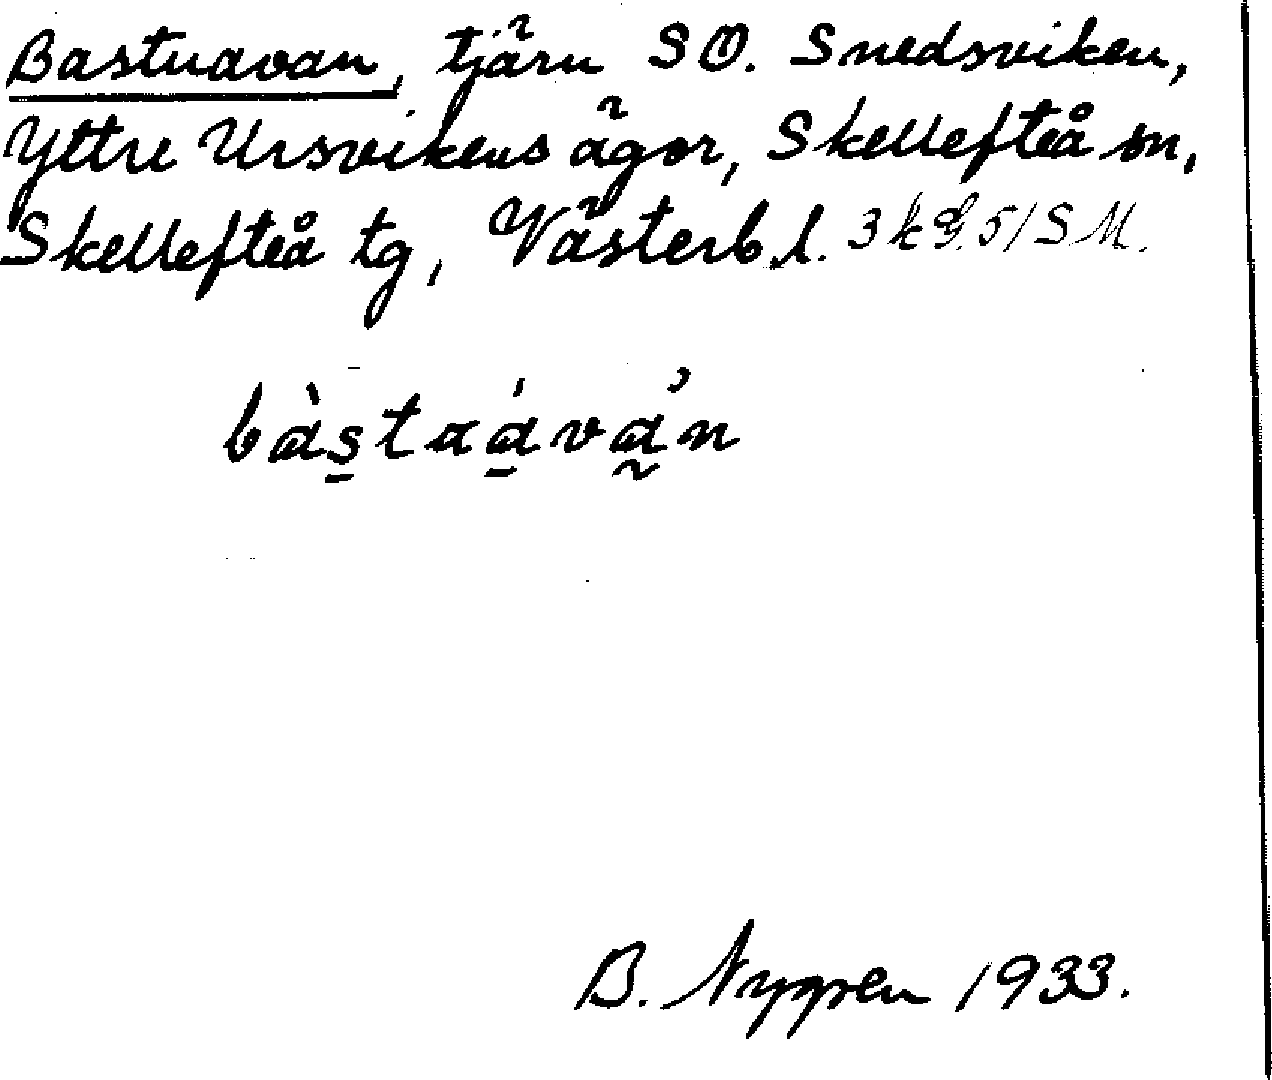 Bastuavan, tjärn SO. Snedsviken,
Yttre Ursvikens ägor, Skellefteå sn,
Skellefteå tg, Västerb.l.
bàs̱taá̱vἀ̰n
B. Nygren 1933.